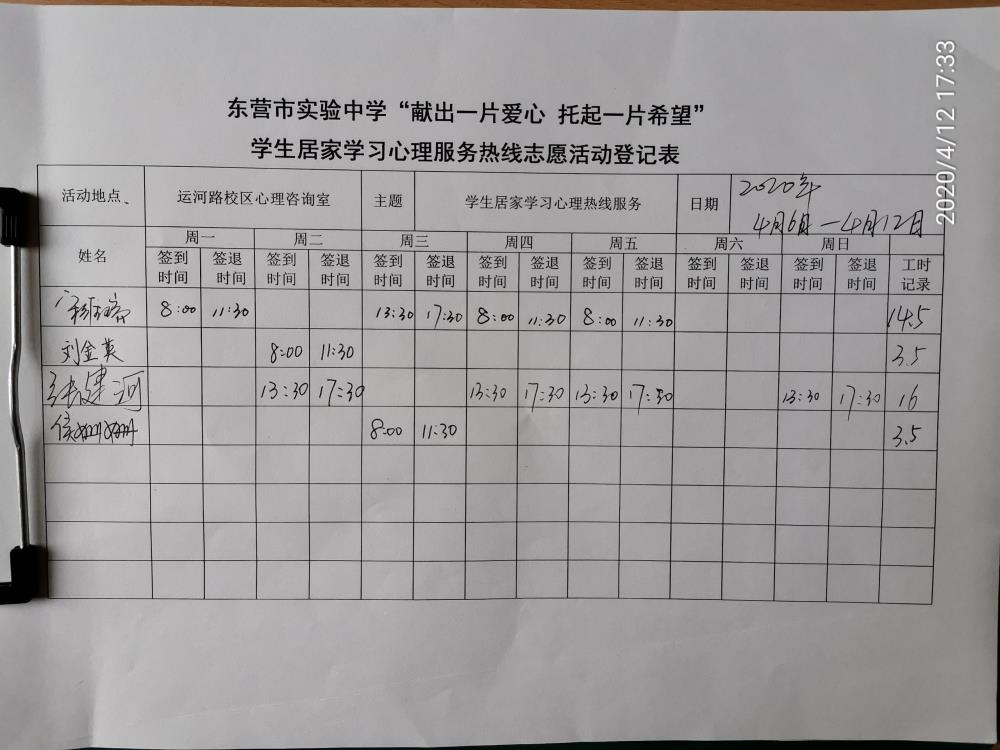 2020/4/12 17:33
东营市实验中学“献出一片爱心 托起一片希望”
学生居家学习心理服务热线志愿活动登记表
活动地点、 运河路校区心理咨询室 主题 学生居家学习心理热线服务 日期 2020年
4月6日—4月12日
姓名 周一 周二 周三 周四 周五 周六 周日
签到 签退 签到 签退 签到 签退 签到 签退 签到 签退 签到 签退 签到 签退 工时
时间 时间 时间 时间 时间 时间 时间 时间 时间 时间 时间 时间 时间 时间 记录
8:00 11:30 13:30 17:30 8:00 11:30 8:00 11:30 14.5
刘金英 8:00 11:30 3.5
张建河 13:30 17:30 13:30 17:30 13:30 17:30 13:30 17:30 16
侯姗姗 8:00 11:30 3.5